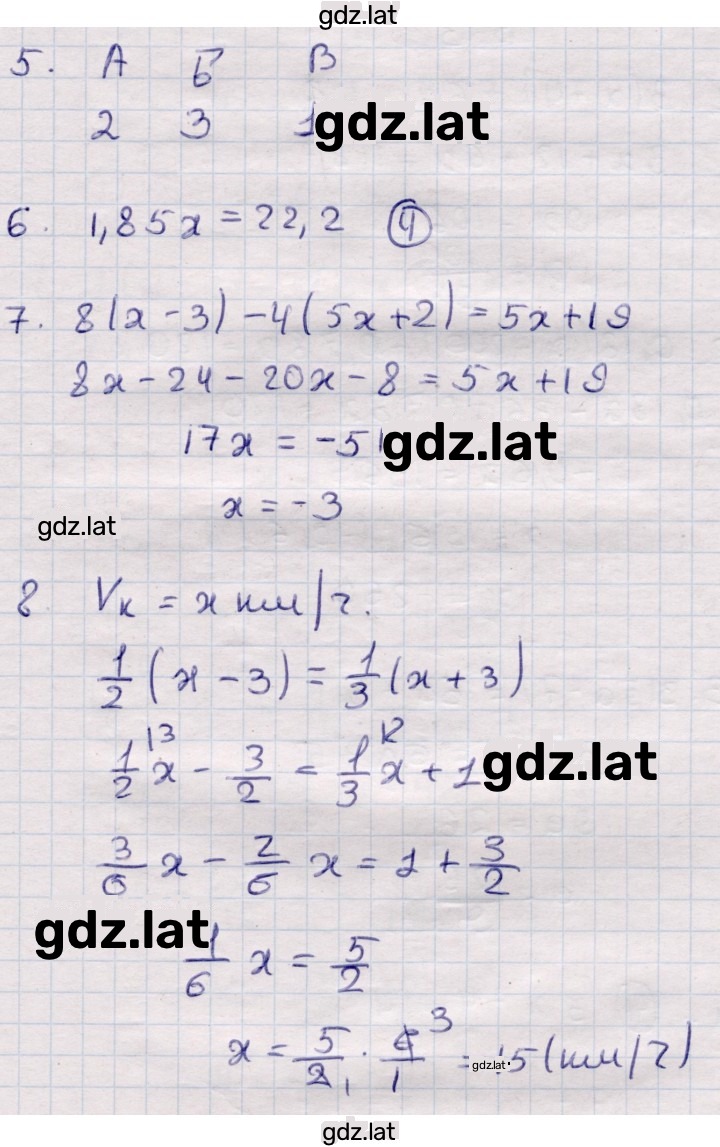 gdz.lat
5. А Б В
2 3 1 gdz.lat
6. 1,85x = 22,2 (4)
7. 8(x - 3) - 4(5x + 2) = 5x + 19
8x - 24 - 20x - 8 = 5x + 19
17x = -51 gdz.lat
x = -3
gdz.lat
8 Vк = x км/ч.
1/2 (x - 3) = 1/3 (x + 3)
1/2 |3 x - 3/2 = 1/3 |2 x + 1 gdz.lat
3/6 x - 2/6 x = 1 + 3/2
gdz.lat
1/6 x = 5/2
x = 5/2 1 · 6/1 3 = 15 (км/ч)
gdz.lat
gdz.lat